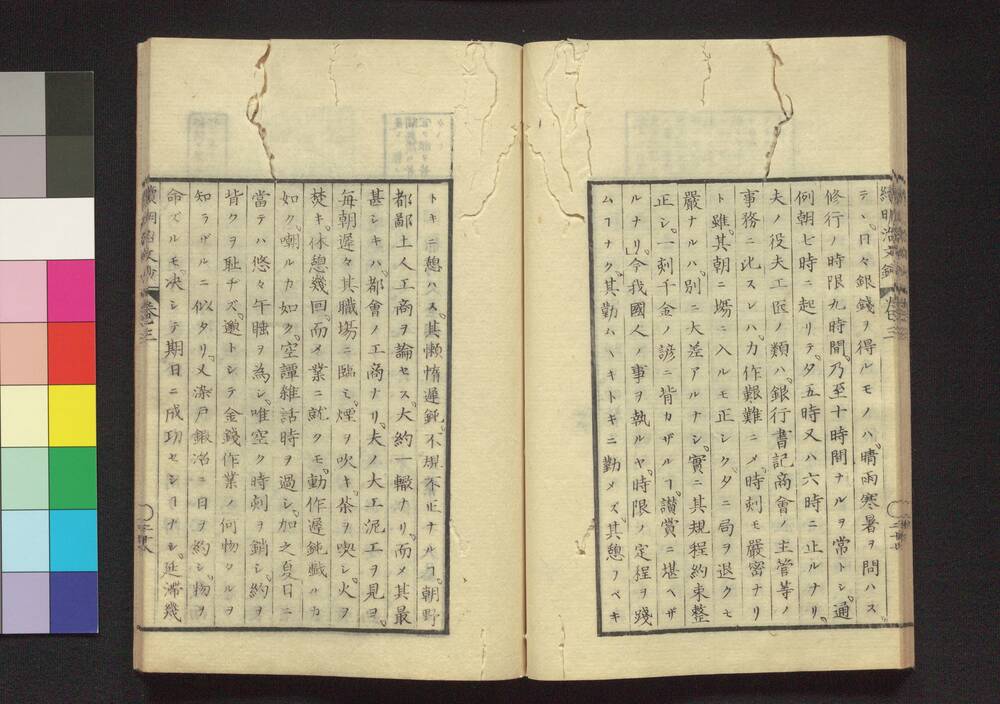 續明治文鈔 卷之三
テ、日々銀錢ヲ得ルモノハ。晴雨寒暑ヲ問ハス。
修行ノ時限九時間。乃至十時間ナルヲ常トシ。通
例朝七時ニ起リテ。夕五時又ハ六時ニ止ルナリ。
夫ノ役夫工匠ノ類ハ。銀行書記商會ノ主管等ノ
事務ニ比スレハ。力作艱難ニメ。時刻モ嚴密ナリ
ト雖。其朝ニ場ニ入ルモ正シク。夕ニ局ヲ退クモ
嚴ナルハ。別ニ大差アルナシ。實ニ其規程約束整
正シ。一刻千金ノ諺ニ背カザルヿ。讃賞ニ堪ヘザ
ルナリ」。今我國人ノ事ヲ執ルヤ。時限ノ定程ヲ踐
ムヿナク。其勤ムヘキトキニ勤メズ。其憩フベキ
トキニ憩ハス。其懶惰遲鈍。不規不正ナルヿ。朝野
都鄙士人工商ヲ論セス。大約一轍ナリ。而メ其最
甚シキハ。都會ノ工商ナリ。夫ノ大工泥工ヲ見ヨ。
每朝遲々其職場ニ臨ミ。煙ヲ吹キ。茶ヲ喫シ。火ヲ
焚キ。休憩幾回。而メ業ニ就クモ。動作遲鈍戲ルカ
如ク。嘲ルカ如ク。空譚雜話時ヲ過シ。加之夏日ニ
當テハ。悠々午睡ヲ為シ。唯空ク時刻ヲ銷シ。約ヲ
背クヲ耻ヂズ。邈トシテ金錢作業ノ何物タルヲ
知ラザルニ似タリ。又染戸鍛冶ニ日ヲ約シ。物ヲ
命ズルモ。决シテ期日ニ成功セシヿナシ。延滞幾
續明治文鈔 卷之三